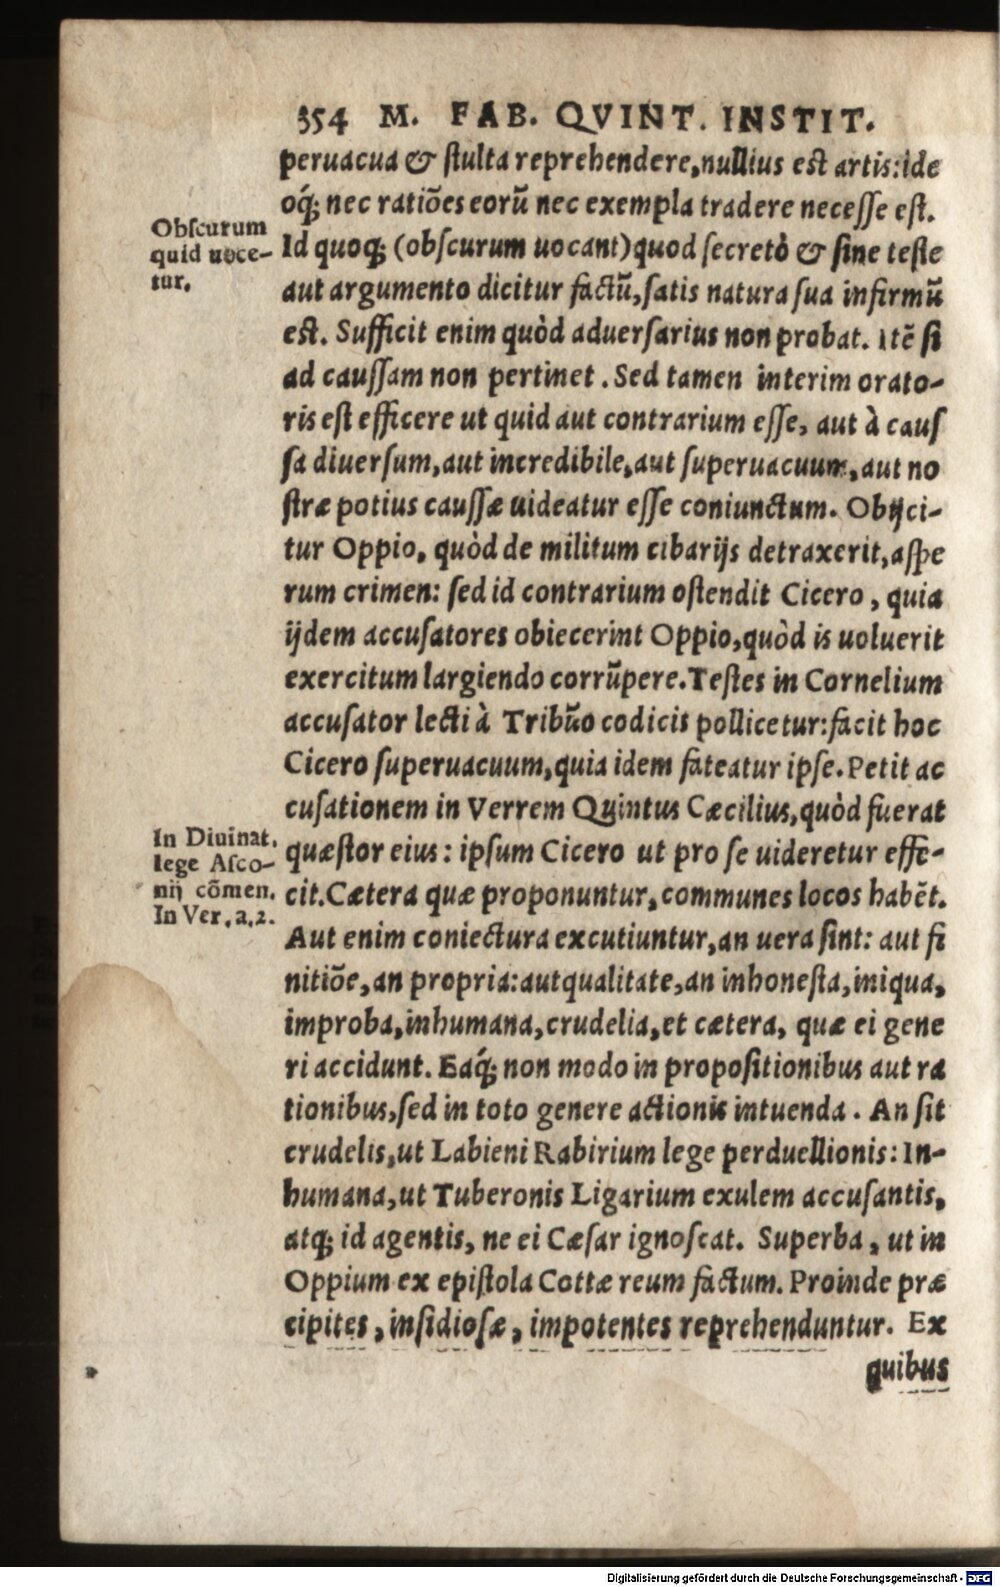 354 M. FAB. QVINT. INSTIT.
peruacua & ſtulta reprehendere, nullius eſt artis: ide
oq́; nec ratiões eorũ nec exempla tradere neceſſe eſt.
Obſcurum
quid uoce-
tur.
Id quoq; (obſcurum uocant) quod ſecretò & ſine teſte
aut argumento dicitur factũ, ſatis natura ſua infirmũ
eſt. Sufficit enim quòd aduerſarius non probat. Itẽ ſi
ad cauſſam non pertinet. Sed tamen interim orato-
ris eſt efficere ut quid aut contrarium eſſe, aut à cauſ
ſa diuerſum, aut incredibile, aut ſuperuacuum, aut no
ſtræ potius cauſſæ uideatur eſſe coniunctum. Obijci-
tur Oppio, quòd de militum cibarijs detraxerit, aſpe
rum crimen: ſed id contrarium oſtendit Cicero, quia
ijdem accuſatores obiecerint Oppio, quòd is uoluerit
exercitum largiendo corrũpere. Teſtes in Cornelium
accuſator lecti à Tribũo codicis pollicetur: facit hoc
Cicero ſuperuacuum, quia idem fateatur ipſe. Petit ac
cuſationem in Verrem Quintus Cæcilius, quòd fuerat
In Diuinat.
lege Aſco-
nij cõmen.
In Ver. a. 2.
quæſtor eius: ipſum Cicero ut pro ſe uideretur effe-
cit. Cætera quæ proponuntur, communes locos habẽt.
Aut enim coniectura excutiuntur, an uera ſint: aut fi
nitiõe, an propria: aut qualitate, an inhoneſta, iniqua,
improba, inhumana, crudelia, et cætera, quæ ei gene
ri accidunt. Eaq́; non modo in propoſitionibus aut ra
tionibus, ſed in toto genere actionis intuenda. An ſit
crudelis, ut Labieni Rabirium lege perduellionis: In-
humana, ut Tuberonis Ligarium exulem accuſantis,
atq; id agentis, ne ei Cæſar ignoſcat. Superba, ut in
Oppium ex epiſtola Cottæ reum factum. Proinde præ
cipites, inſidioſæ, impotentes reprehenduntur. Ex
quibus
Digitalisierung gefördert durch die Deutsche Forschungsgemeinschaft - DFG